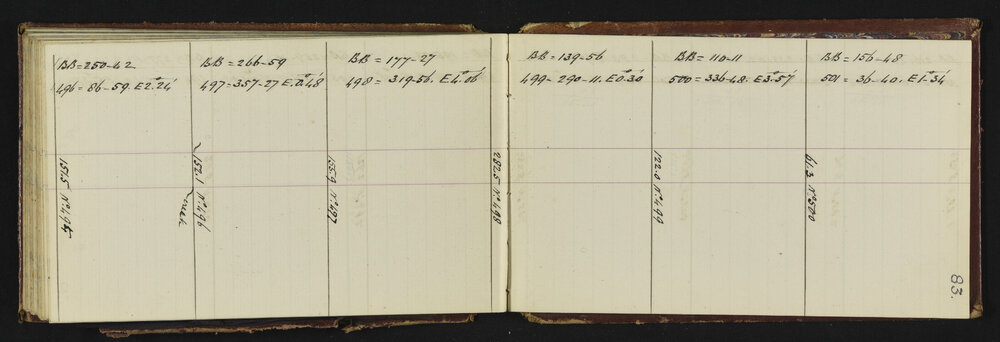 BB = 250-42
496 = 86-59. E2°24'
151.5 No 495
BB = 266-59
497 = 357-27 E.2°48
152.1 No 496
BB = 177-27
498 = 319-56. E4°06
155.9 No 497
282.5 No 498
BB = 139-56
499 - 290-11. E0.30
BB = 110-11
500 = 336-48. E3°57
122.0 No 499
BB = 156-48
501 = 36-40. E1°34
61.3 No 500
83.